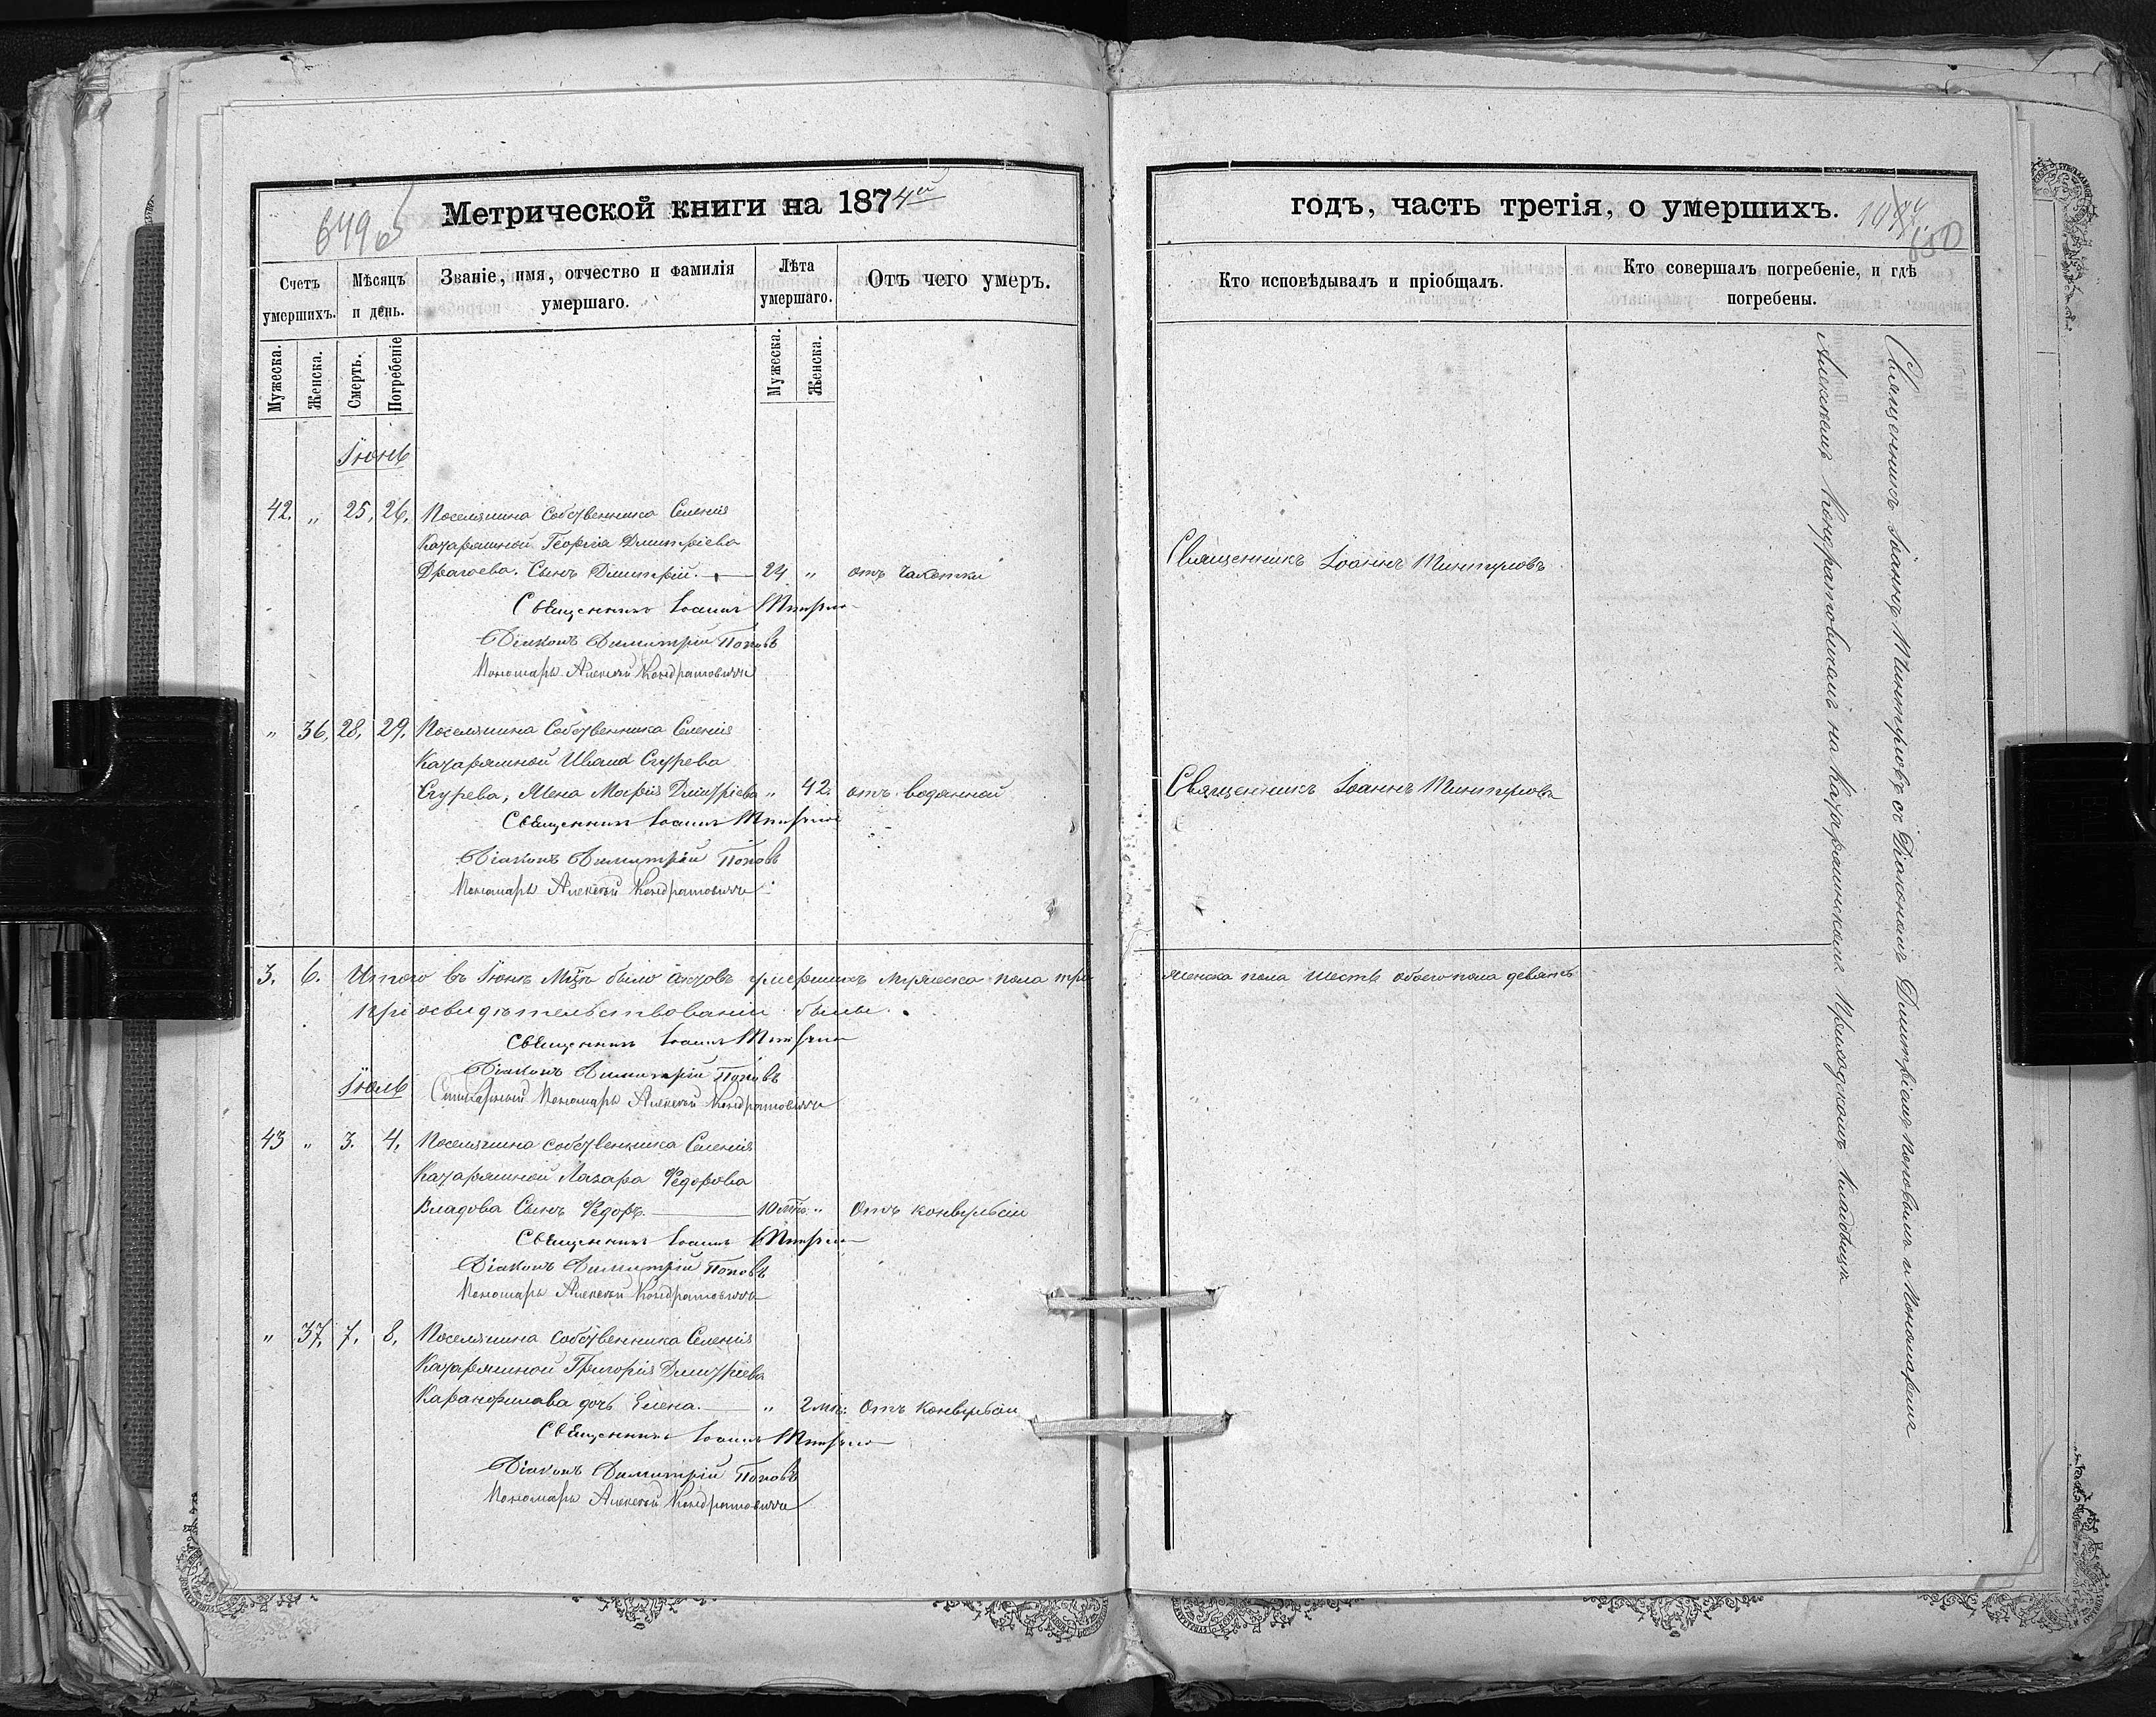 Метрической книги на 1874й
649об
Счетъ умершихъ.
Мѣсяцъ и день.
Званіе, имя, отчество и фамилія умершаго.
Лѣта умершаго.
Отъ чего умеръ.
Мужеска.
Женска.
Смерть.
Погребеніе
Мужеска.
Женска.
Іюнь
42. " 25, 26, Поселянина Собственника Селенія
Катаржиной Георгія Дмитріева
Драгоева. Сынъ Дмитрій. 24 " отъ чахотки
Священникъ Іоаннъ
Діаконъ Димитрій Поповъ
Пономарь Алексѣй Кондратовичъ
" 36, 28, 29, Поселянина Собственника Селенія
Катаржиной Ивана Сгурева
Сгурева, Жена Марія Дмитріева " 42. отъ водянной
Священникъ Іоаннъ
Діаконъ Димитрій Поповъ
Пономарь Алексѣй Кондратовичъ
3. 6. Итого въ Іюнѣ М-цѣ было актовъ умершихъ мужеска пола три
при освидѣтельствованіи были.
Священникъ Іоаннъ
Діаконъ Димитрій Поповъ
Іюль
Пономарь Алексѣй Кондратовичъ
43 " 3. 4, Поселянина собственника Селенія
Катаржиной Лазара Федорова
Владова Сынъ Федоръ. 10 м-цъ. " Отъ конвульсіи
Священникъ Іоаннъ
Діаконъ Димитрій Поповъ
Пономарь Алексѣй Кондратовичъ
" 37, 7, 8, Поселянина собственника Селенія
Катаржиной Григорія Дмитріева
Каранфилова дочь Елена. " 2 мц: Отъ Конвульсіи
Священникъ Іоаннъ
Діаконъ Димитрій Поповъ
Пономарь Алексѣй Кондратовичъ
годъ, часть третія, о умершихъ.
650
Кто исповѣдывалъ и пріобщалъ.
Кто совершалъ погребеніе, и гдѣ погребены.
Священникъ Іоаннъ
Священникъ Іоаннъ
женска пола шесть обоего пола девять
Священникъ Іоаннъ съ Діакономъ Димитріемъ Поповымъ и Пономаремъ
Алексѣемъ Кондратовичемъ на Катаржинскомъ Приходскомъ Кладбищѣ